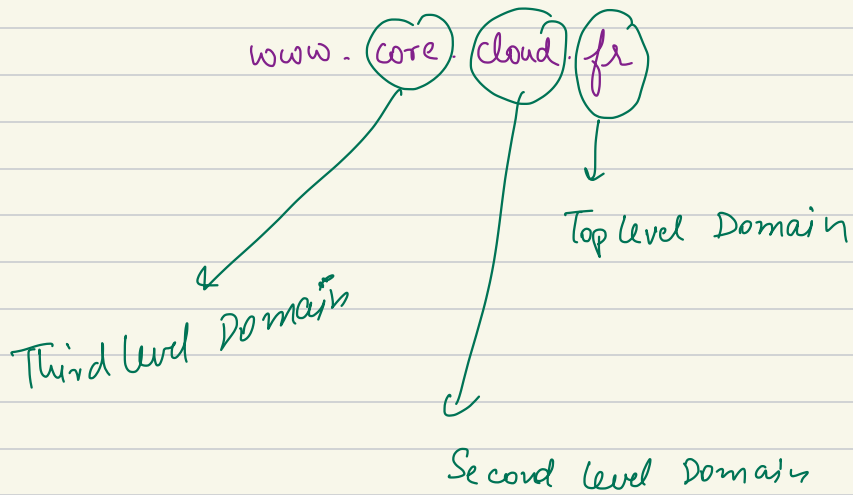 www. core. cloud. fr
Top level Domain
Third level Domain
Second level Domain